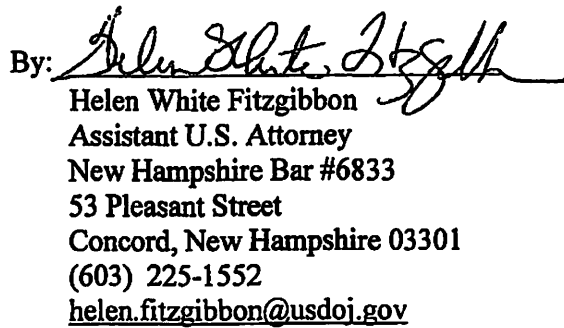 By: Helen White Fitzgibbon
Helen White Fitzgibbon
Assistant U.S. Attorney
New Hampshire Bar #6833
53 Pleasant Street
Concord, New Hampshire 03301
(603) 225-1552
helen.fitzgibbon@usdoj.gov